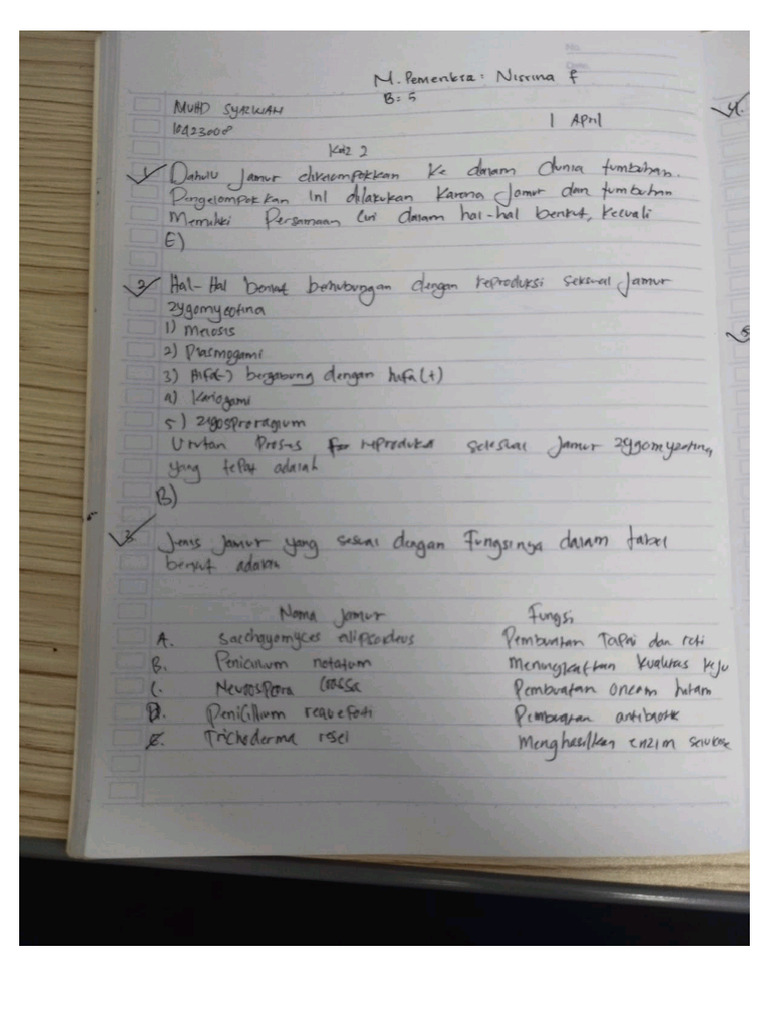 No.
Date
M. Pemeriksa: Nisrina f
B: 5
MUHD SYAZWAN
10423008
1 April
Kuiz 2
1. Dahulu Jamur dikelompokkan Ke dalam dunia tumbuhan.
Pengelompokkan Ini dilakukan Karena Jamur dan tumbuhan
Memiliki Persamaan Ciri dalam hal-hal berikut, Kecuali
E)
2. Hal-Hal berikut berhubungan dengan reproduksi seksual Jamur
Zygomycotina
1) Meiosis
2) Plasmogami
3) Hifa(-) bergabung dengan hifa(+)
4) Kariogami
5) Zigosprorangium
Urutan Proses reproduksi Jamur Zygomycotina
yang tepat adalah
B)
3. Jenis Jamur yang sesuai dengan Fungsinya dalam tabel
berikut adalah
Nama Jamur Fungsi
A. Saccharomyces Pembuatan Tapai dan roti
B. Penicilium notatum Meningkatkan kualitas keju
C. Neurospora Crassa Pembuatan oncom hitam
D. Penicillium Pembuatan antibiotik
E. Trichoderma resei Menghasilkan enzim selulose
4.
5